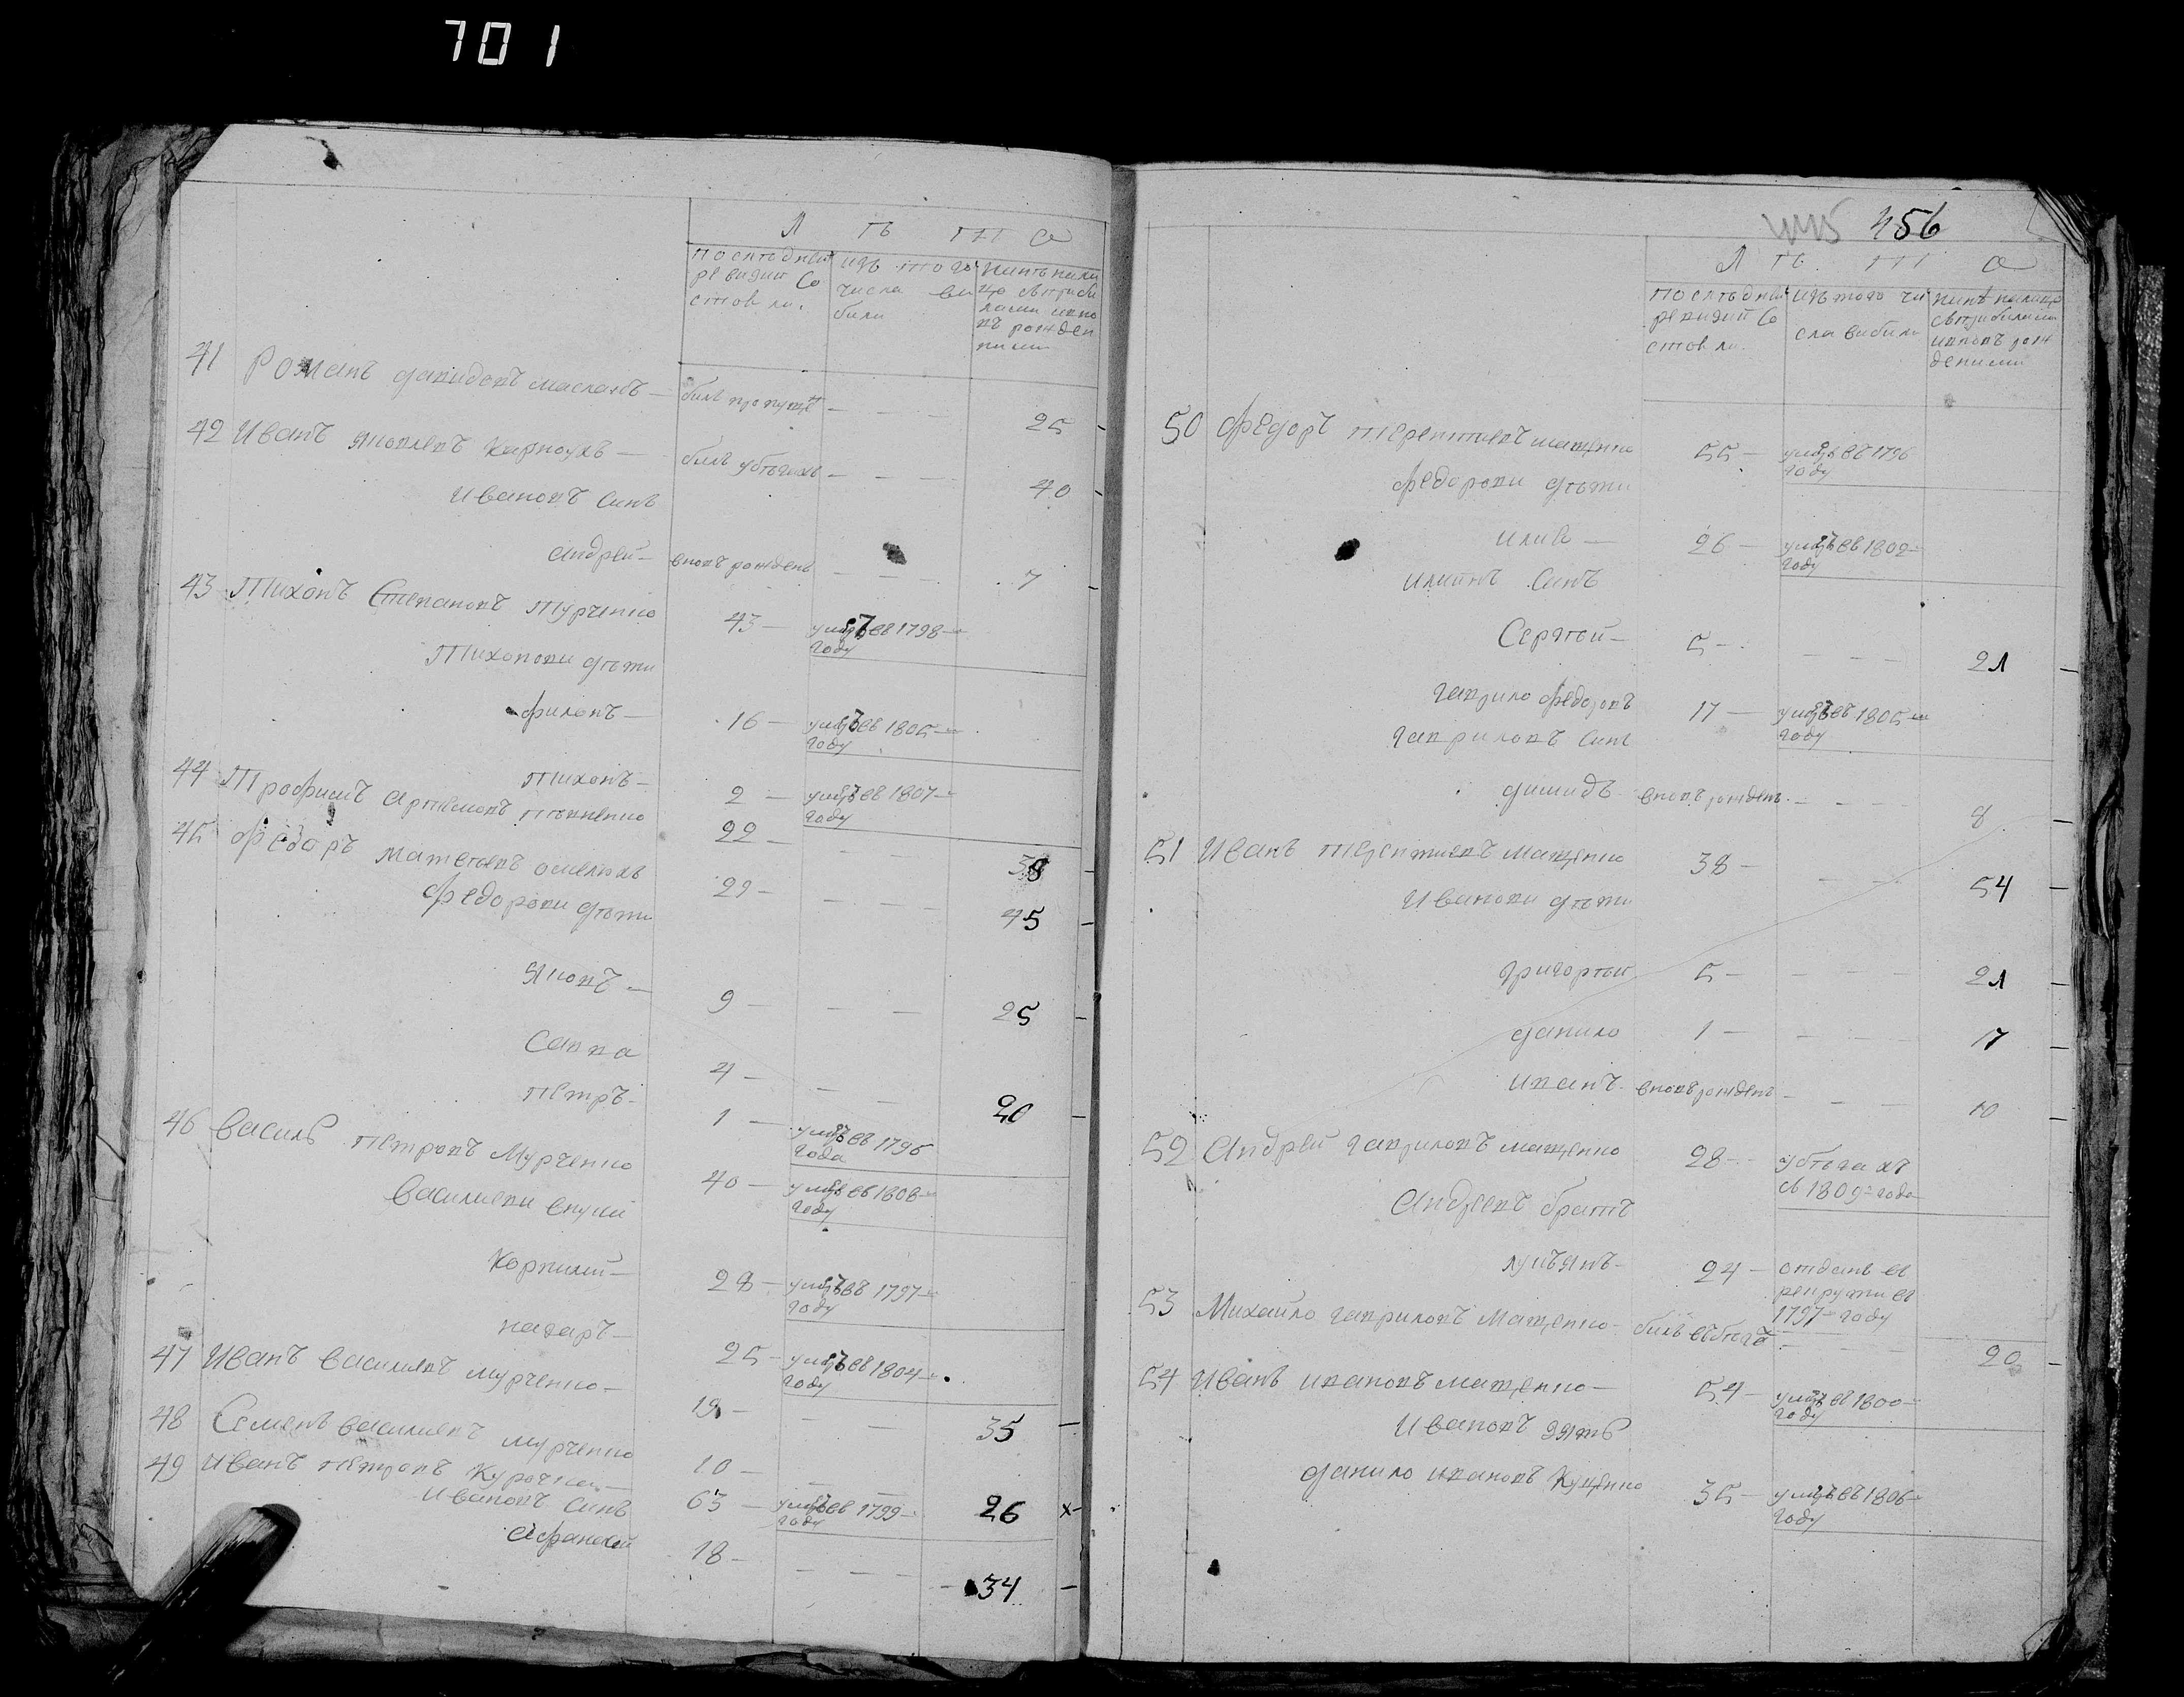 701
Л ѣ т а
По слѣдней ревизии состояли.
изъ того числа выбыли
нинѣ налицо съ прибылыми и вновь рожденними
41 Романъ Давидовъ Маслакъ — былъ пропущ — 25
42 Иванъ Яковлевъ Карпоухъ — былъ убѣгахъ — 40
Ивановъ синъ
Андрей — вновь рожденъ — 7
43 Тихонъ Степановъ Турченко 43 — умрѣ въ 1798 году
Тихонови дѣти
Филопъ — 16 — умрѣ въ 1805 году
Тихонъ — 2 — умрѣ въ 1807 году
44 Трофимъ Артемовъ 22 — 38
45 Федоръ Матвѣевъ Омелюхъ 29 — 45
Федорови дѣти
Яковъ — 9 — 25
Савка 4 — 20
Петръ — 1 — умрѣ въ 1796 года
46 Василь Петровъ Мурченко 40 — умрѣ въ 1808 году
Василиеви внуки
Корнилий — 28 — умрѣ въ 1797 году
Назаръ — 25 — умрѣ въ 1804 году
47 Иванъ Василиевъ Мурченко — 19 — 35
48 Семенъ Василиевъ Мурченко 10 — 26 х
49 Иванъ Петровъ Курочка — 63 — умрѣ въ 1799 году
Ивановъ синъ
Афанасий 18 — 34
456
Л ѣ т а
По слѣдней ревизии состояли.
изъ того числа выбили
нинѣ налицо съ прибилими и вновь рожденими
50 Федоръ Терентиевъ Мащенко 55 — умрѣ въ 1796 году
Федорови дѣти
Илия — 26 — умрѣ въ 1802 году
Илиинъ синъ
Сергѣй — 5 — 21
Гаврило Федоровъ 17 — умрѣ въ 1805 году
Гавриловъ синъ
Димидъ — вновь рожденъ — 8
51 Иванъ Терентиевъ Мащенко 38 — 54
Иванови дѣти
Григорѣй 5 — 21
Данило 1 — 17
Иванъ — вновь рожденъ — 10
52 Андрей Гавриловъ Мащенко 28 — убѣгахъ съ 1809 года
Андреевъ братъ
Лукъянъ — 24 — отданъ въ рекрути въ 1797 году
53 Михайло Гавриловъ Мащенко — билъ въ бѣгахъ — 20
54 Иванъ Ивановъ Мащенко — 54 — умрѣ въ 1800 году
Ивановъ зять
Данило Ивановъ Куценко 35 — умрѣ въ 1806 году